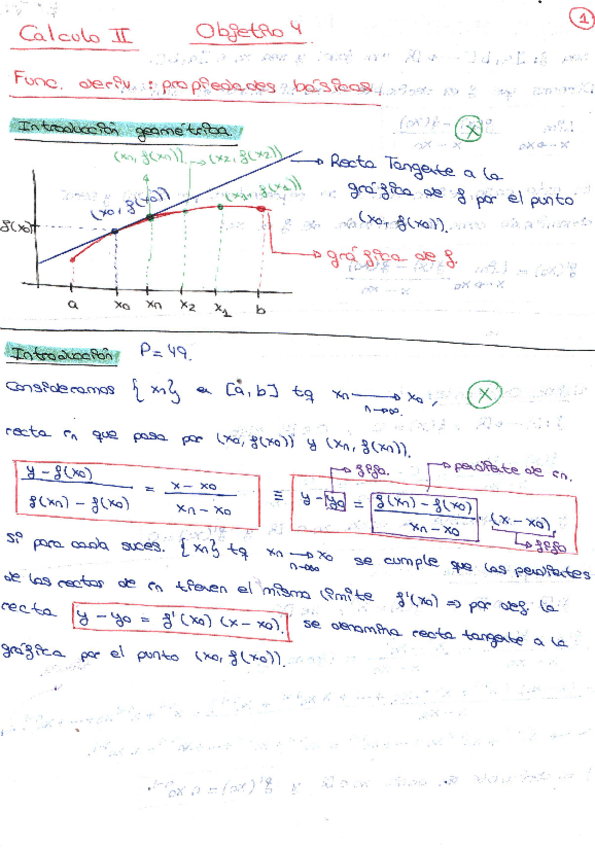 1
Cálculo II Objetivo 4
Func. deriv.: propiedades básicas
Introducción geométrica
(xn, f(xn)) → (x2, f(x2))
(x0, f(x0))
(x1, f(x1))
f(x0)
a x0 xn x2 x1 b
→ Recta Tangente a la
gráfica de f por el punto
(x0, f(x0)).
→ gráfica de f.
Introducción P=49.
Consideramos {xn} en [a,b] tq xn → x0,
n→∞
recta rn que pasa por (x0, f(x0)) y (xn, f(xn)).
(y - f(x0)) / (f(xn) - f(x0)) = (x - x0) / (xn - x0) ≡ y - y0 = (f(xn) - f(x0)) / (xn - x0) (x - x0)
→ fijo. → pendiente de rn.
→ fijo
Si para cada suces. {xn} tq xn → x0 se cumple que las pendientes
n→∞
de las rectas de rn tienen el mismo límite f'(x0) => por def. la
recta y - y0 = f'(x0) (x - x0). se denomina recta tangente a la
gráfica por el punto (x0, f(x0)).